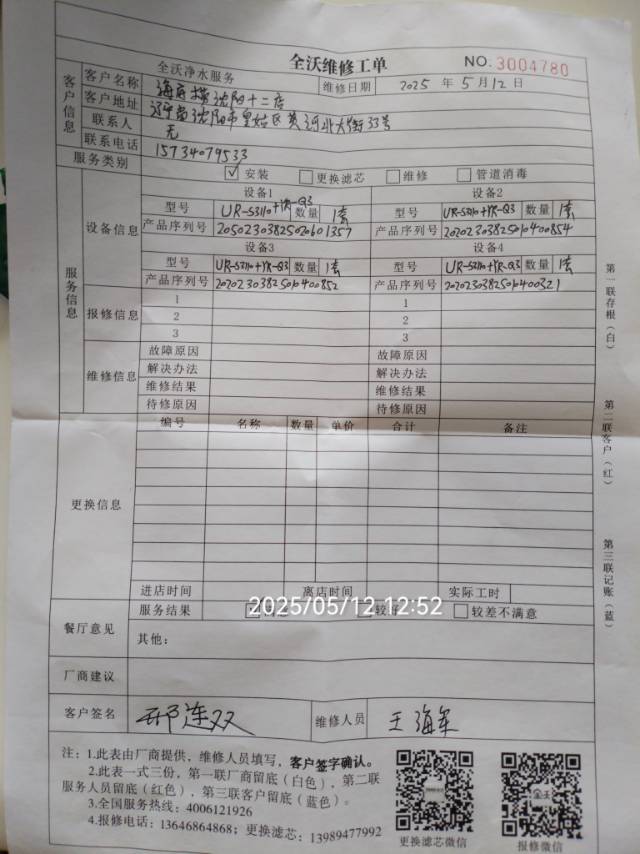 全沃维修工单
NO. 3004780
全沃净水服务
维修日期 2025 年 5 月 12 日
客户信息
客户名称 海底捞沈阳十二店
客户地址 辽宁省沈阳市皇姑区黄河北大街33号
联系人 无
联系电话 15734079533
服务类别 ☑安装 □更换滤芯 □维修 □管道消毒
服务信息
设备信息
设备1 设备2
型号 UR-S3110+YR-Q3 数量 1套 型号 UR-S3110+YR-Q3 数量 1套
产品序列号 20502303825020601357 产品序列号 20202303825010400854
设备3 设备4
型号 UR-S3110+YR-Q3 数量 1套 型号 UR-S3110+YR-Q3 数量 1套
产品序列号 20202303825010400852 产品序列号 20202303825010400321
报修信息
1 1
2 2
3 3
维修信息
故障原因 故障原因
解决办法 解决办法
维修结果 维修结果
待修原因 待修原因
更换信息
编号 名称 数量 单价 合计 备注
进店时间 离店时间 实际工时
餐厅意见
服务结果 较差不满意
2025/05/12 12:52
其他:
厂商建议
客户签名 邢连双 维修人员 王海军
注:1.此表由厂商提供,维修人员填写,客户签字确认。
2.此表一式三份,第一联厂商留底(白色),第二联
服务人员留底(红色),第三联客户留底(蓝色)。
3.全国服务热线:4006121926
4.报修电话:13646864868;更换滤芯:13989477992
更换滤芯微信
报修微信
第一联存根(白)
第二联客户(红)
第三联记账(蓝)